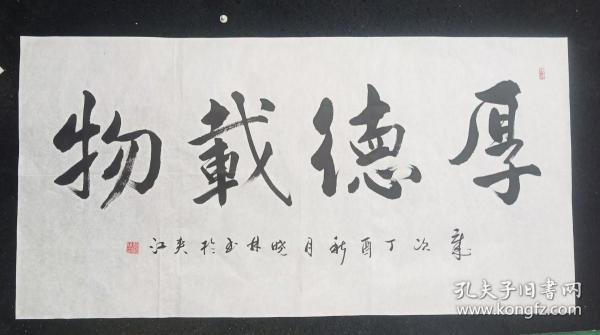 厚德載物
歲次丁酉秋月曉林書於夾江
孔夫子旧书网
www.kongfz.com